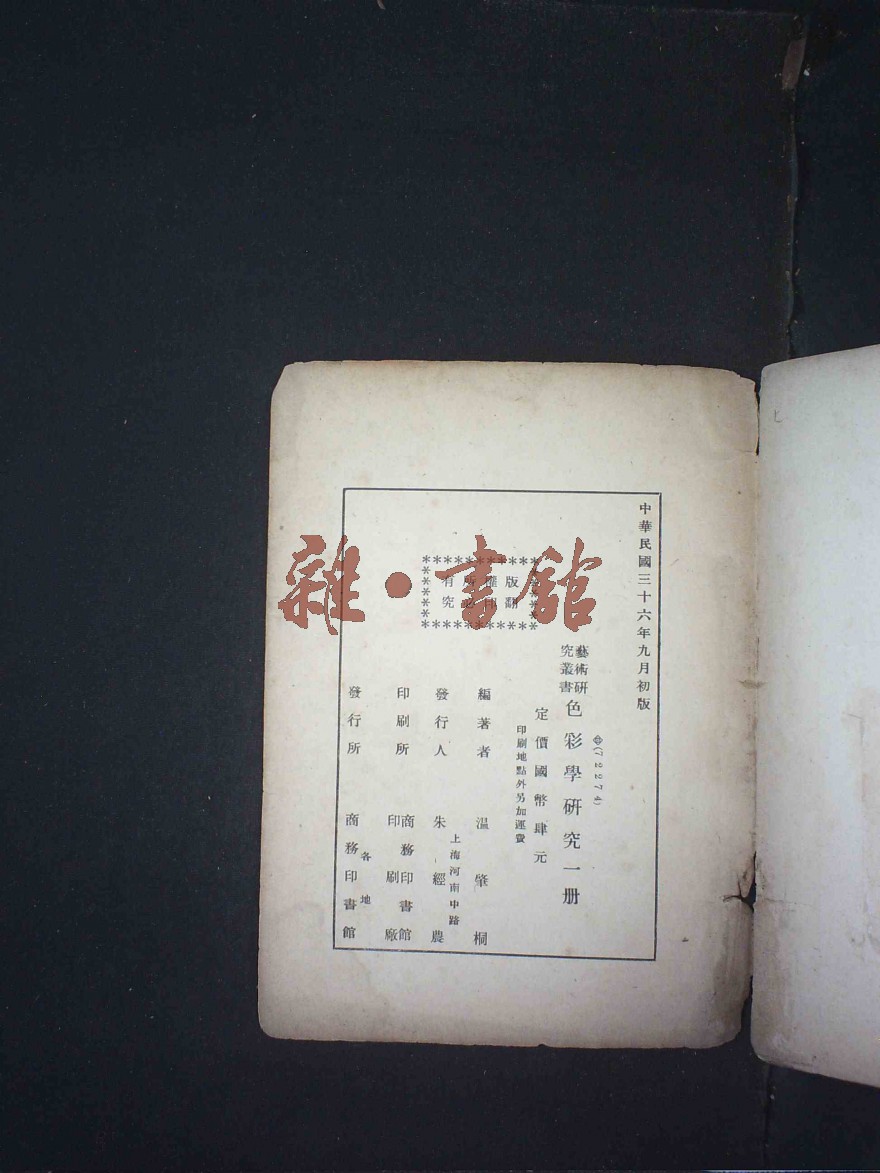 中華民國三十六年九月初版
(72274)
藝術研
究叢書
色彩學研究一册
定價國幣肆元
印刷地點外另加運費
版權所有
翻印必究
編著者 温肇桐
上海河南中路
發行人 朱經農
印刷所 商務印書館
印刷廠
發行所 各地
商務印書館
雜·書館